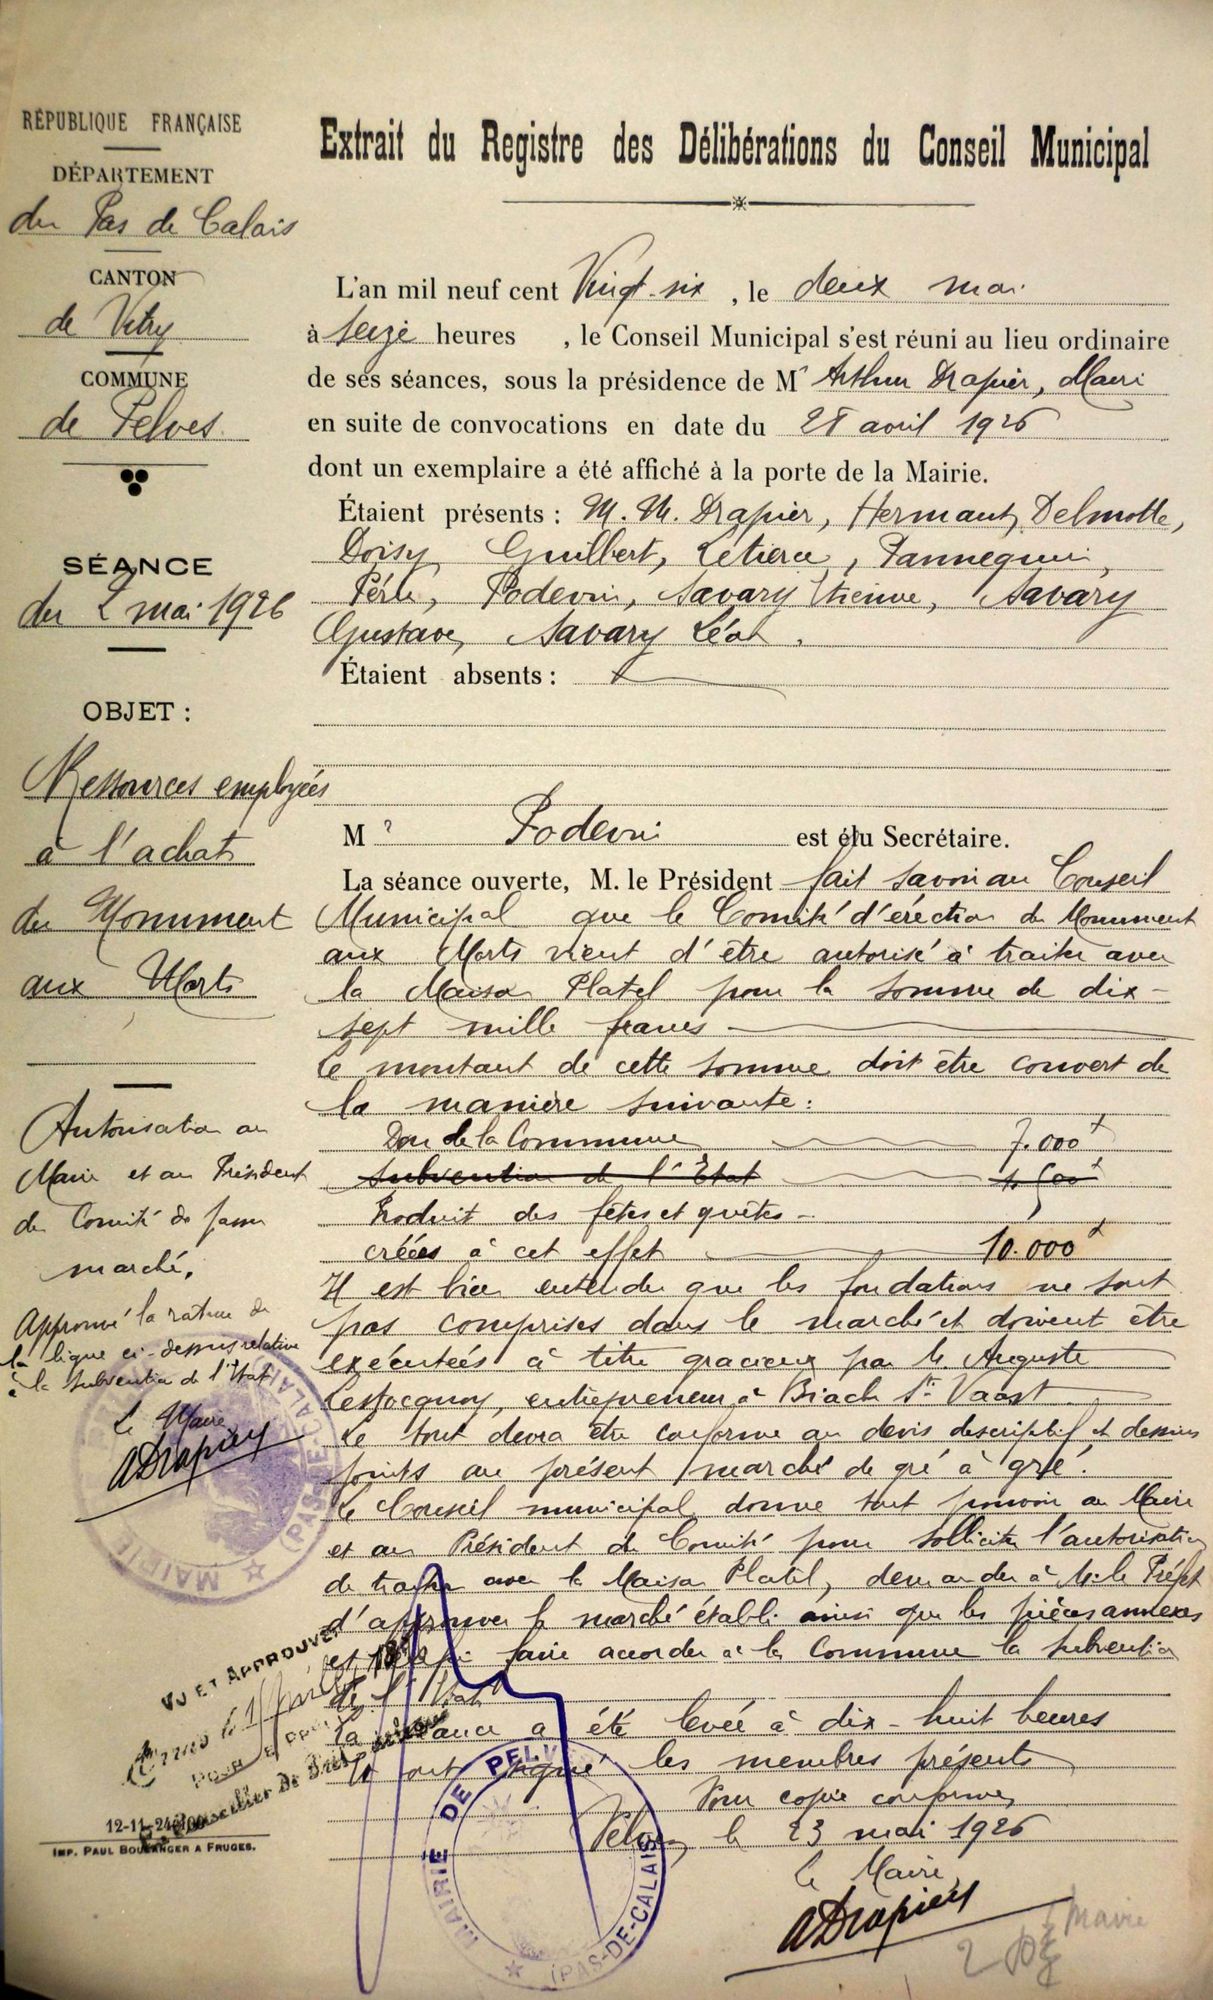 RÉPUBLIQUE FRANÇAISE
DÉPARTEMENT
du Pas de Calais
CANTON
de Vitry
COMMUNE
de Pelves
SÉANCE
du 2 mai 1926
OBJET :
Ressources employées
à l'achat
du Monument
aux Morts
Autorisation au
Maire et au Président
du Comité de passer
marché.
Approuvé la rature de
la ligne ci-dessus relative
à la subvention de l'Etat
Le Maire
ADrapier
MAIRIE DE PELVES (PAS-DE-CALAIS)
VU ET APPROUVÉ
POUR LE PRÉFET
Le Conseiller de Préfecture
12-11-24
IMP. PAUL BOULANGER A FRUGES.
Extrait du Registre des Délibérations du Conseil Municipal
L'an mil neuf cent Vingt-six, le deux mai
à seize heures , le Conseil Municipal s'est réuni au lieu ordinaire
de ses séances, sous la présidence de Mr Arthur Drapier, Maire
en suite de convocations en date du 28 avril 1926
dont un exemplaire a été affiché à la porte de la Mairie.
Étaient présents : M. M. Drapier, Hermant, Delmotte,
Doisy, Guilbert, Létiene, Pannequin,
Pérle, Podevin, Savary Etienne, Savary
Gustave, Savary Léon.
Étaient absents :
Mr Podevin est élu Secrétaire.
La séance ouverte, M. le Président fait savoir au Conseil
Municipal que le Comité d'érection du Monument
aux Morts vient d'être autorisé à traiter avec
la Maison Platel pour la somme de dix-
sept mille francs
Le montant de cette somme doit être couvert de
la manière suivante :
Don de la Commune 7.000 f
Subvention de l'Etat 500 f
Produit des fêtes et quêtes -
créées à cet effet 10.000 f
Il est bien entendu que les fondations ne sont
pas comprises dans le marché et doivent être
exécutées à titre gracieux par M. Auguste
Lestocquoy, entrepreneur à Biach St Vaast
Le tout devra être conforme au devis descriptif et dessins
joints au présent marché de gré à gré.
Le Conseil municipal donne tout pouvoir au Maire
et au Président du Comité pour solliciter l'autorisation
de traiter avec la Maison Platel, demander à M. le Préfet
d'approuver le marché établi ainsi que les pièces annexes
et faire accorder à la Commune la subvention
de l'Etat
La séance a été levée à dix-huit heures
Et ont signé les membres présents
Pour copie conforme,
Pelves, le 23 mai 1926
Le Maire,
ADrapier
MAIRIE DE PELVES (PAS-DE-CALAIS)
Mairie